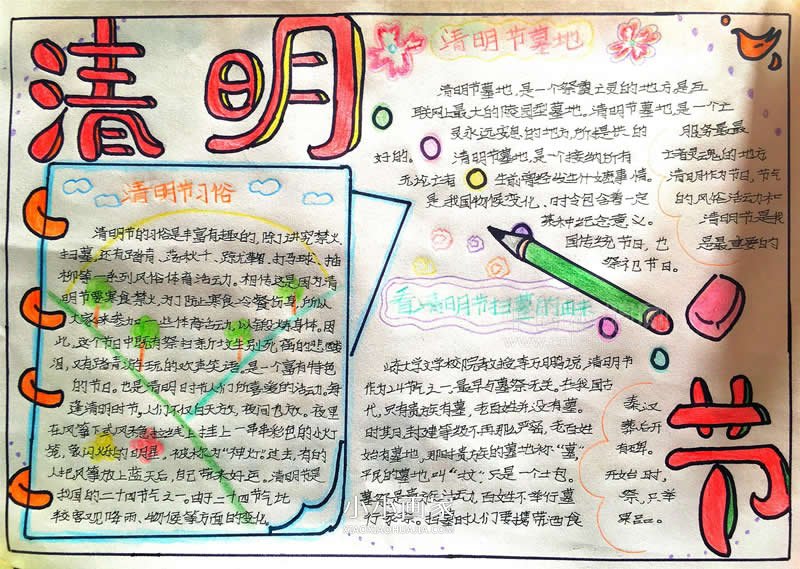 清明
节
清明节习俗
清明节的习俗是丰富有趣的,除了讲究禁火、
扫墓,还有踏青、荡秋千、蹴鞠、打马球、插
柳等一系列风俗体育活动。相传这是因为清
明节要寒食禁火,为了防止寒食冷餐伤身,所以
大家来参加一些体育活动,以锻炼身体。因
此,这个节日中既有祭扫新坟生别死离的悲酸
泪,又有踏青游玩的欢声笑语,是一个富有特色
的节日。也是清明时节人们所喜爱的活动。每
逢清明时节,人们不仅白天放,夜间也放。夜里
在风筝下或风稳拉线上挂上一串串彩色的小灯
笼,象闪烁的明星,被称为"神灯"。过去,有的
人把风筝放上蓝天后,自己带来好运。清明节是
我国的二十四节气之一。由于二十四节气比
较客观降雨、物候等方面的变化
清明节墓地
清明节墓地,是一个祭奠亡灵的地方,是互
联网上最大的陵园型墓地。清明节墓地是一个亡
灵永远安息的地方,所提供的 服务是最
好的。 清明节墓地,是一个接纳所有 亡者灵魂的地方
无论亡者 生前曾经出生什么事情。 清明作为节日,节气
是我国物候变化、时令 的风俗活动和
某种纪念意义。 清明节是我
国传统节日,也 是最重要的
祭祀节日。
看清明节扫墓的由来
山东大学文学院教授李万鹏说,清明节
作为24节气之一,最早与墓祭无关。在我国古
代,只有贵族有墓,老百姓并没有墓。 秦汉
时其日,封建等级不再那么严密,老百姓 葬后开
始有墓地,那时贵族的墓地称"墓", 有
平民的墓地叫"坟",只是一个土包。 开始时,
祭,只举
行 扫墓时人们要携带酒食 果品
小小画家
XIAOXIAOHUAJIA.COM